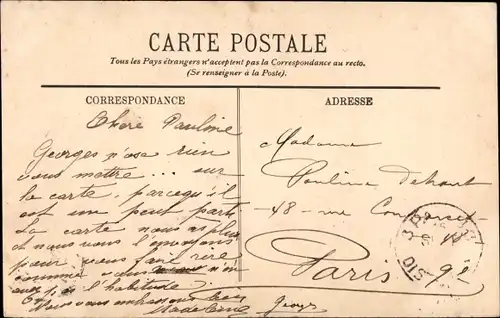 CARTE POSTALE
Tous les Pays étrangers n'acceptent pas la Correspondance au recto.
(Se renseigner à la Poste).
CORRESPONDANCE
Chère Pauline
Georges n'ose rien
vous mettre ... sur
la carte, parcequ'il
est un peu parti
La carte nous a plu
et nous vous l'envoyons
pour vous faire rire
comme vous n'en
avez pas l'habitude.
Nous vous embrassons bien
Madeleine Georges
ADRESSE
Madame
Pauline
48 - rue
Paris 9e